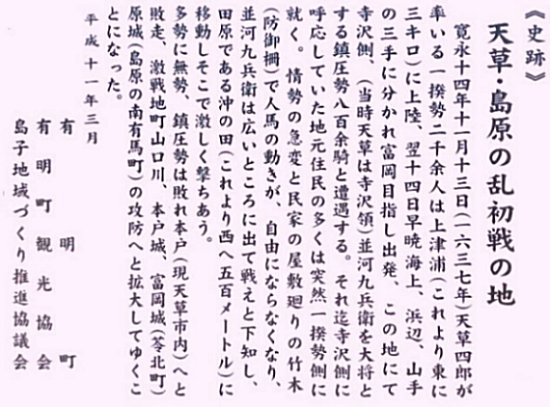 《史跡》
天草・島原の乱初戦の地
寛永十四年十一月十三日(一六三七年)天草四郎が
率いる一揆勢二千余人は上津浦(これより東に
三キロ)に上陸、翌十四日早暁海上、浜辺、山手
の三手に分かれ富岡目指し出発、この地にて
寺沢側、(当時天草は寺沢領)並河九兵衛を大将と
する鎮圧勢八百余騎と遭遇する。それ迄寺沢側に
呼応していた地元住民の多くは突然一揆勢側に
就く。情勢の急変と民家の屋敷廻りの竹木
(防御柵)で人馬の動きが、自由にならなくなり、
並河九兵衛は広いところに出て戦えと下知し、
田原である沖の田(これより西へ五百メートル)に
移動しそこで激しく撃ちあう。
多勢に無勢、鎮圧勢は敗れ本戸(現天草市内)へと
敗走、激戦地町山口川、本戸城、富岡城(苓北町)
原城(島原の南有馬町)の攻防へと拡大してゆくこ
とになった。
平成十一年三月
有明町
有明町観光協会
島子地域づくり推進協議会